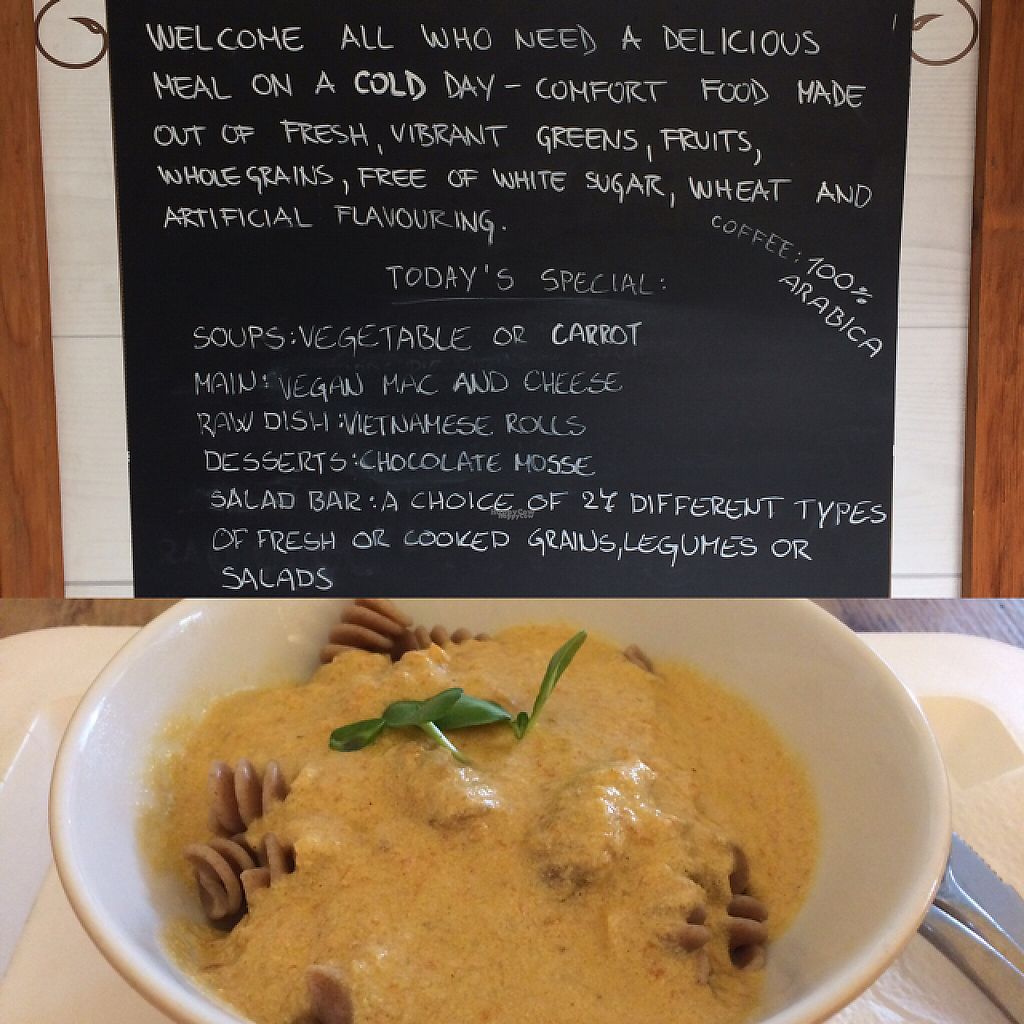 WELCOME ALL WHO NEED A DELICIOUS
MEAL ON A COLD DAY - COMFORT FOOD MADE
OUT OF FRESH, VIBRANT GREENS, FRUITS,
WHOLE GRAINS, FREE OF WHITE SUGAR, WHEAT AND
ARTIFICIAL FLAVOURING.
COFFEE: 100%
ARABICA
TODAY'S SPECIAL:
SOUPS: VEGETABLE OR CARROT
MAIN: VEGAN MAC AND CHEESE
RAW DISH: VIETNAMESE ROLLS
DESSERTS: CHOCOLATE MOSSE
SALAD BAR: A CHOICE OF 27 DIFFERENT TYPES
OF FRESH OR COOKED GRAINS, LEGUMES OR
SALADS